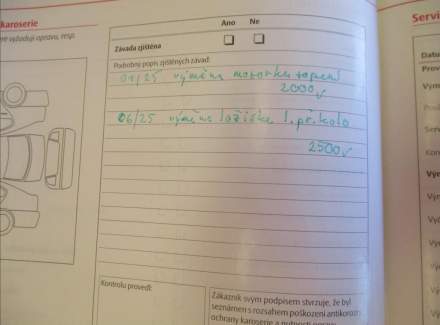 karoserie
Ano Ne
Závada zjištěna
Podrobný popis zjištěných závad:
01/25 výměna motorku topení
2000,-
06/25 výměna ložiska l. př. kolo
2500,-
Kontrolu provedl:
Zákazník svým podpisem stvrzuje, že byl
seznámen s rozsahem poškození antikorozní
ochrany karoserie a nutností opravy
Servi